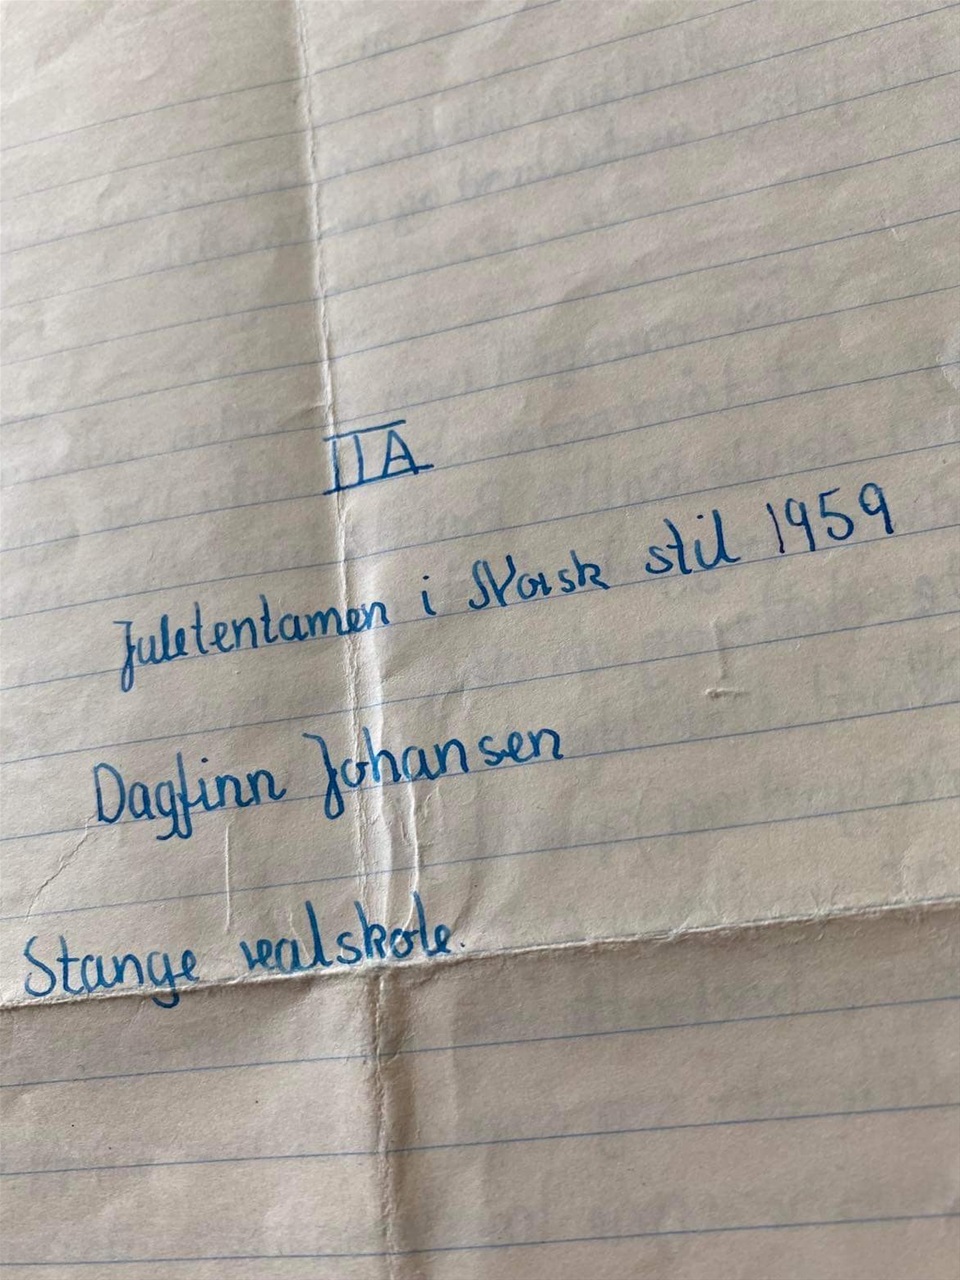 IIA
Juletentamen i Norsk stil 1959
Dagfinn Johansen
Stange realskole.